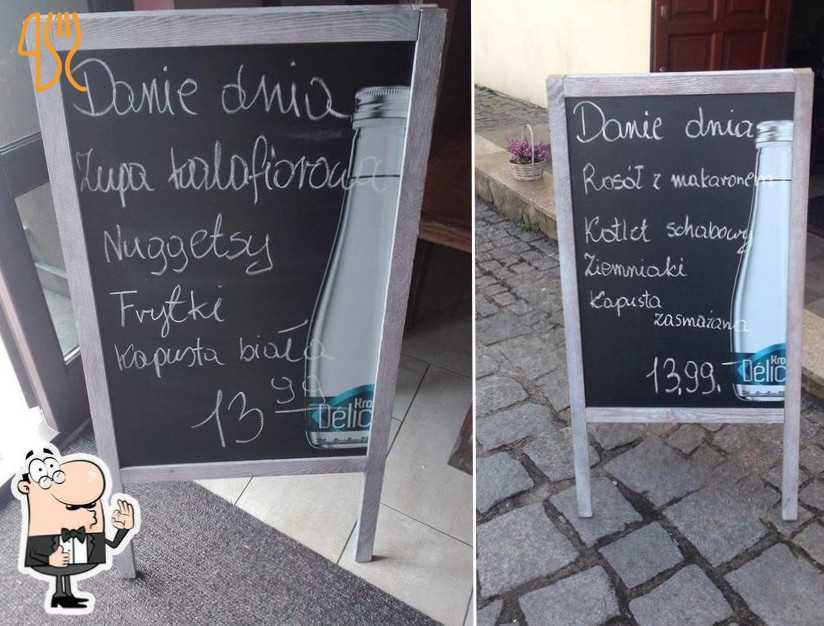 Danie dnia
Zupa kalafiorowa
Nuggetsy
Frytki
Kapusta biała
13 99
Kro
Délic
Danie dnia
Rosół z makaronem
Kotlet schabowy
Ziemniaki
Kapusta
zasmażana
13,99.-
Kro
Délic